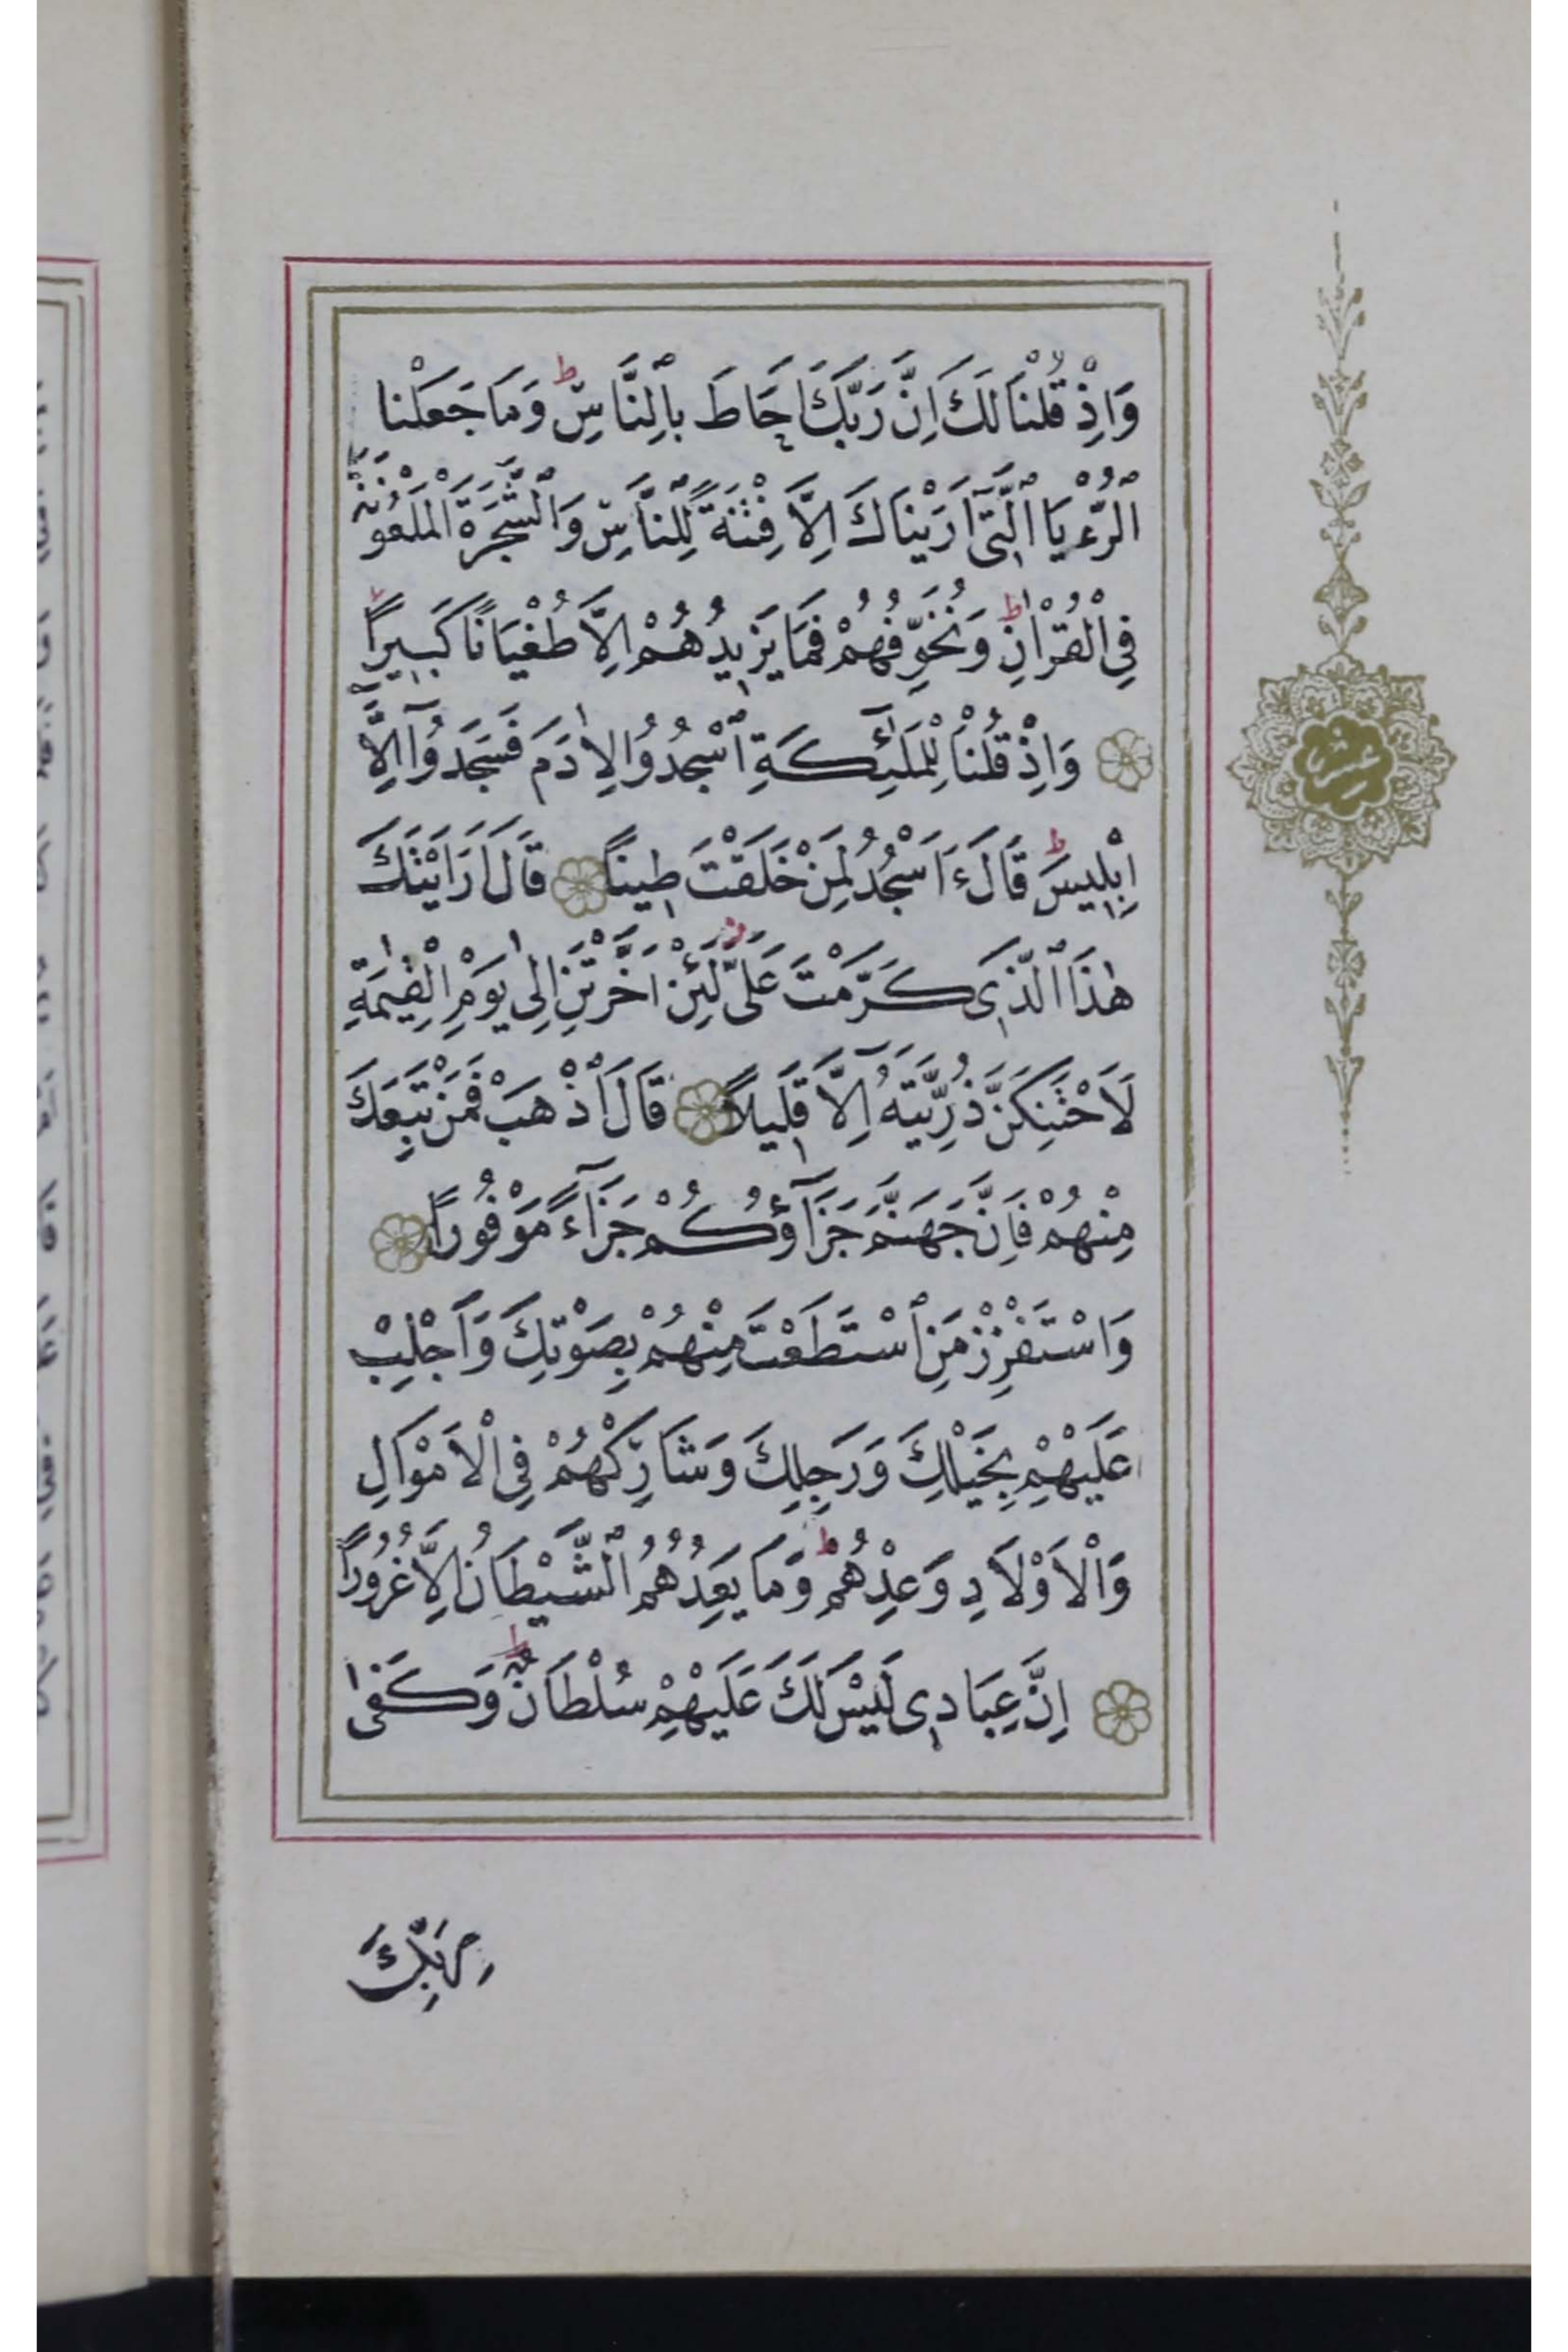 وَاِذْ قُلْنَا لَكَ اِنَّ رَبَّكَ اَحَاطَ بِالنَّاسِ ط وَمَا جَعَلْنَا
الرُّءْيَا الَّتٖٓى اَرَيْنَاكَ اِلَّا فِتْنَةً لِلنَّاسِ وَالشَّجَرَةَ الْمَلْعُونَةَ
فِى الْقُرْاٰنِ ط وَنُخَوِّفُهُمْ فَمَا يَزٖيدُهُمْ اِلَّا طُغْيَانًا كَبٖيرًا
وَاِذْ قُلْنَا لِلْمَلٰٓئِكَةِ اسْجُدُوا لِاٰدَمَ فَسَجَدُٓوا اِلَّٓا
اِبْلٖيسَ ط قَالَ ءَاَسْجُدُ لِمَنْ خَلَقْتَ طٖينًا قَالَ اَرَاَيْتَكَ
هٰذَا الَّذٖى كَرَّمْتَ عَلَىَّ لَئِنْ اَخَّرْتَنِ اِلٰى يَوْمِ الْقِيٰمَةِ
لَاَحْتَنِكَنَّ ذُرِّيَّتَهُٓ اِلَّا قَلٖيلًا قَالَ اذْهَبْ فَمَنْ تَبِعَكَ
مِنْهُمْ فَاِنَّ جَهَنَّمَ جَزَٓاؤُكُمْ جَزَٓاءً مَوْفُورًا
وَاسْتَفْزِزْ مَنِ اسْتَطَعْتَ مِنْهُمْ بِصَوْتِكَ وَاَجْلِبْ
عَلَيْهِمْ بِخَيْلِكَ وَرَجِلِكَ وَشَارِكْهُمْ فِى الْاَمْوَالِ
وَالْاَوْلَادِ وَعِدْهُمْ ط وَمَا يَعِدُهُمُ الشَّيْطَانُ اِلَّا غُرُورًا
اِنَّ عِبَادٖى لَيْسَ لَكَ عَلَيْهِمْ سُلْطَانٌ ط وَكَفٰى
بِرَبِّكَ
عشر